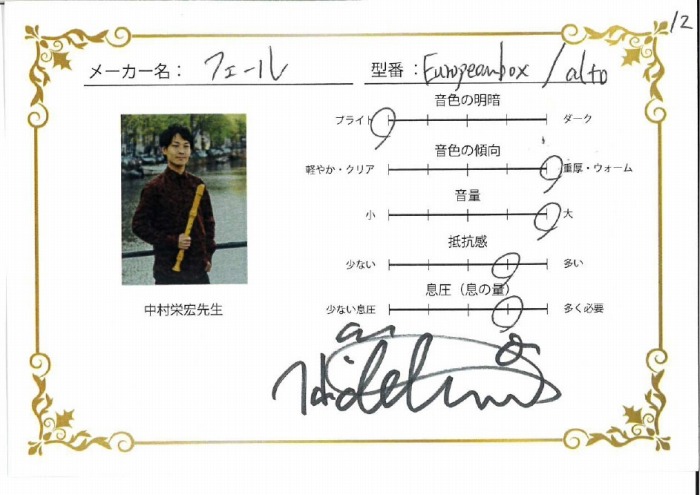 12
メーカー名： フェール 型番：Europeanbox / alto
音色の明暗
ブライト ダーク
音色の傾向
軽やか・クリア 重厚・ウォーム
音量
小 大
抵抗感
少ない 多い
息圧（息の量）
少ない息圧 多く必要
中村栄宏先生